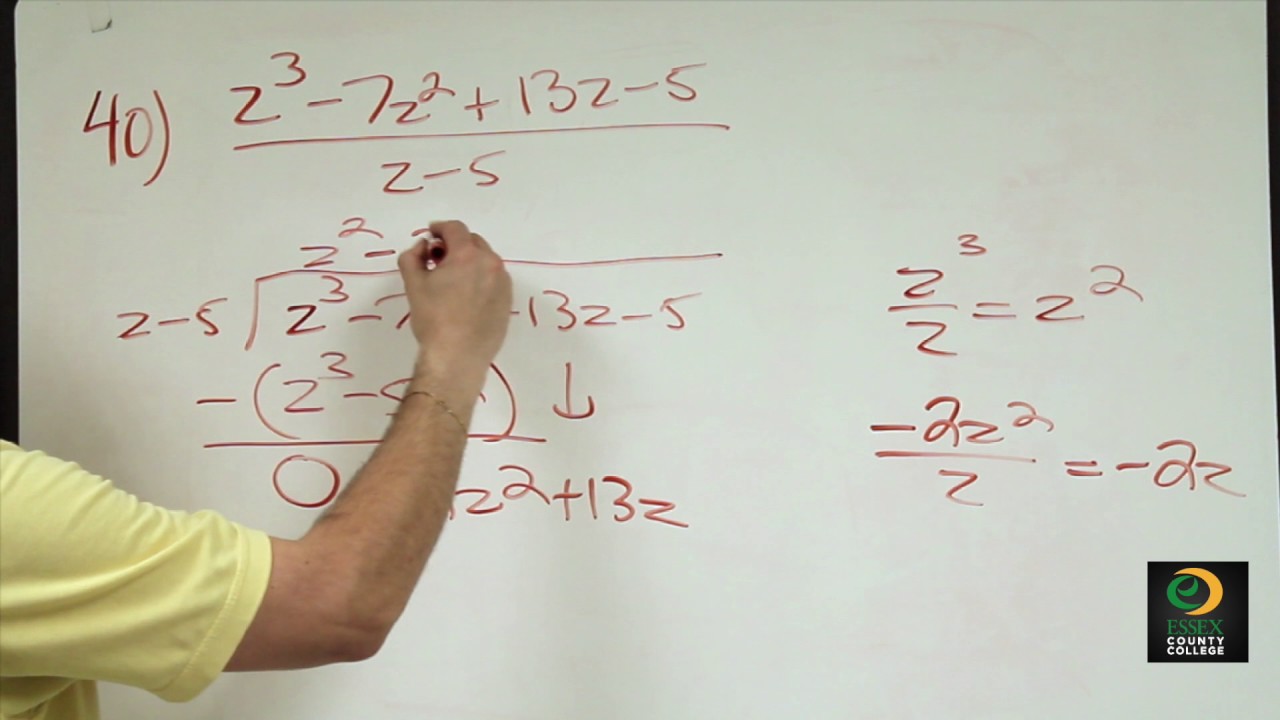 40) z³ - 7z² + 13z - 5
z - 5
z² -
z - 5 z³ - 7 13z - 5
- (z³ - )
0 z² + 13z
z³/z = z²
-2z²/z = -2z
ESSEX
COUNTY
COLLEGE